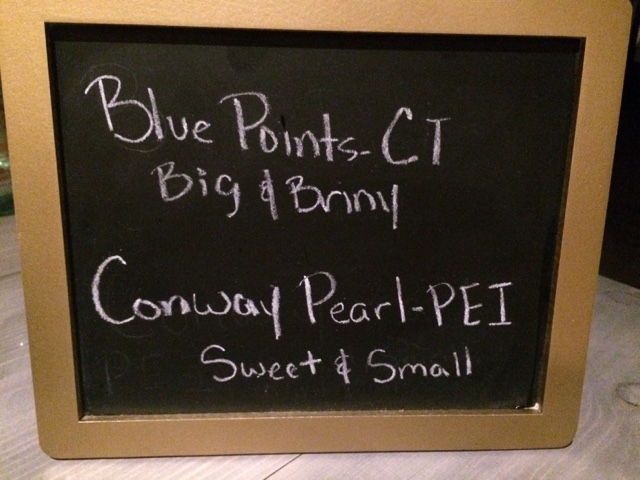 Blue Points-CT
Big & Briny
Conway Pearl-PEI
Sweet & Small